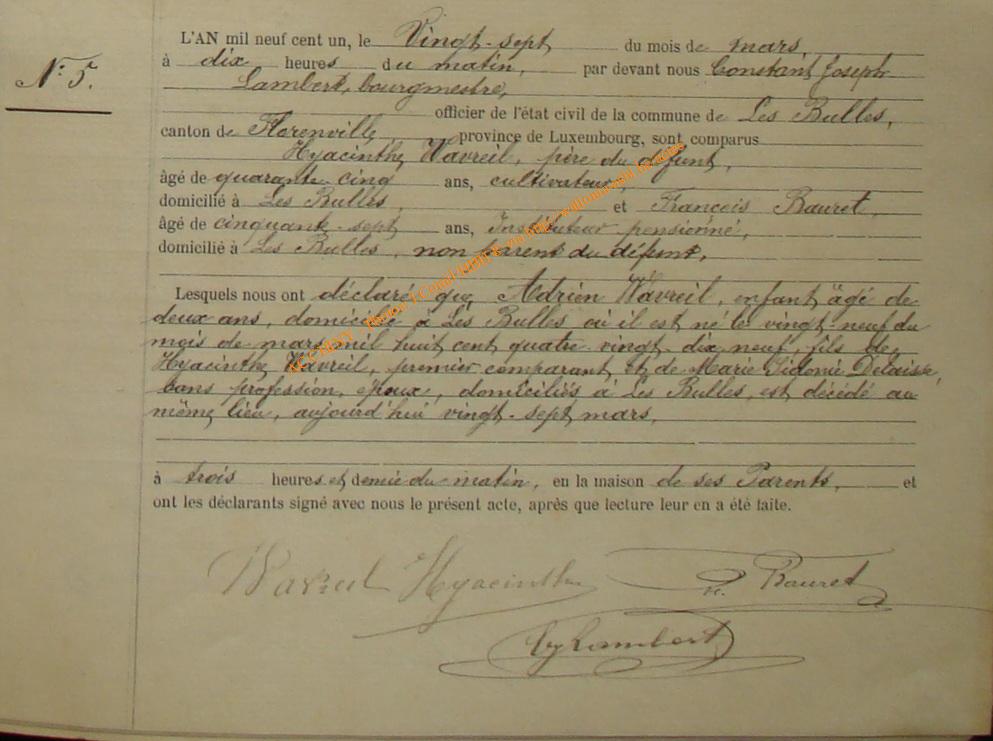 N° 5.
L'AN mil neuf cent un, le Vingt-sept du mois de mars,
à dix heures du matin, par devant nous Constant Joseph
Lambert, bourgmestre,
officier de l'état civil de la commune de Les Bulles,
canton de Florenville, province de Luxembourg, sont comparus
Hyacinthe Wavreil, père du défunt,
âgé de quarante-cinq ans, cultivateur,
domicilié à Les Bulles, et François Bauret,
âgé de cinquante-sept ans, Instituteur pensionné,
domicilié à Les Bulles, non parent du défunt,
Lesquels nous ont déclaré que Adrien Wavreil, enfant âgé de
deux ans, domicilié à Les Bulles où il est né le vingt-neuf du
mois de mars mil huit cent quatre-vingt dix neuf, fils de
Hyacinthe Wavreil, premier comparant et de Marie Sidonie Delaisse,
sans profession, époux, domiciliés à Les Bulles, est décédé au
même lieu, aujourd'hui vingt-sept mars,
à trois heures et demie du matin, en la maison de ses Parents, et
ont les déclarants signé avec nous le présent acte, après que lecture leur en a été faite.
Wavreil Hyacinthe Bauret
Lambert